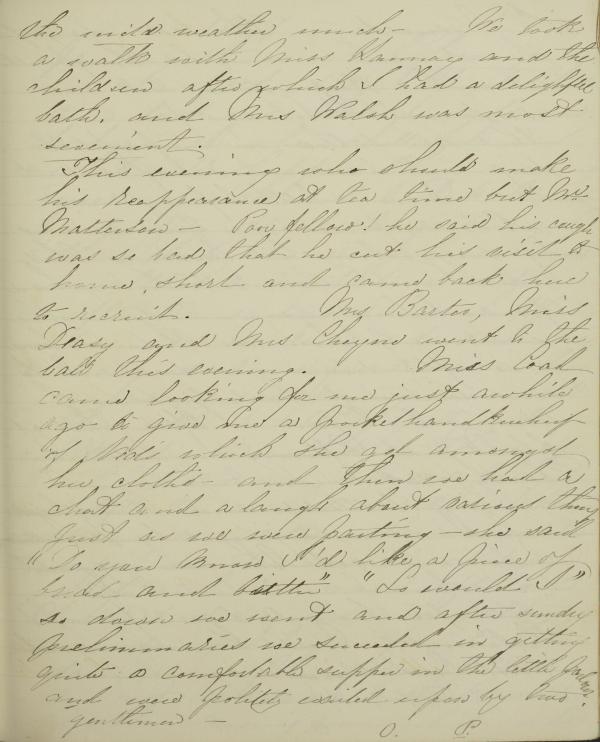 the mild weather much - We took
a walk with Miss Hannay and the
children after which I had a delightful
bath. and Mrs Walsh was most
This evening who should make
his reappearance at tea time but Mr
Matterson - Poor fellow! he said his cough
was so bad that he cut his visit to
home, short and came back here
to recruit. Mrs Barter, Miss
Deasy and Mrs Cheyne went to the
ball this evening. Miss Coad
came looking for me just awhile
ago to give me a pockethandkerchief
of Neds which she got amongst
her cloths - and then we had a
chat and a laugh about various things
Just as we were parting - she said
"Do you know I'd like a piece of
bread and butter" "So would I"
so down we went and after sundry
preliminaries we succeeded in getting
quite a comfortable supper in the little parlour.
and were politely waited upon by two
gentlemen -
O. P.